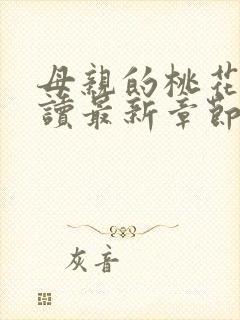 母親的桃花
讀最新章節
灰音